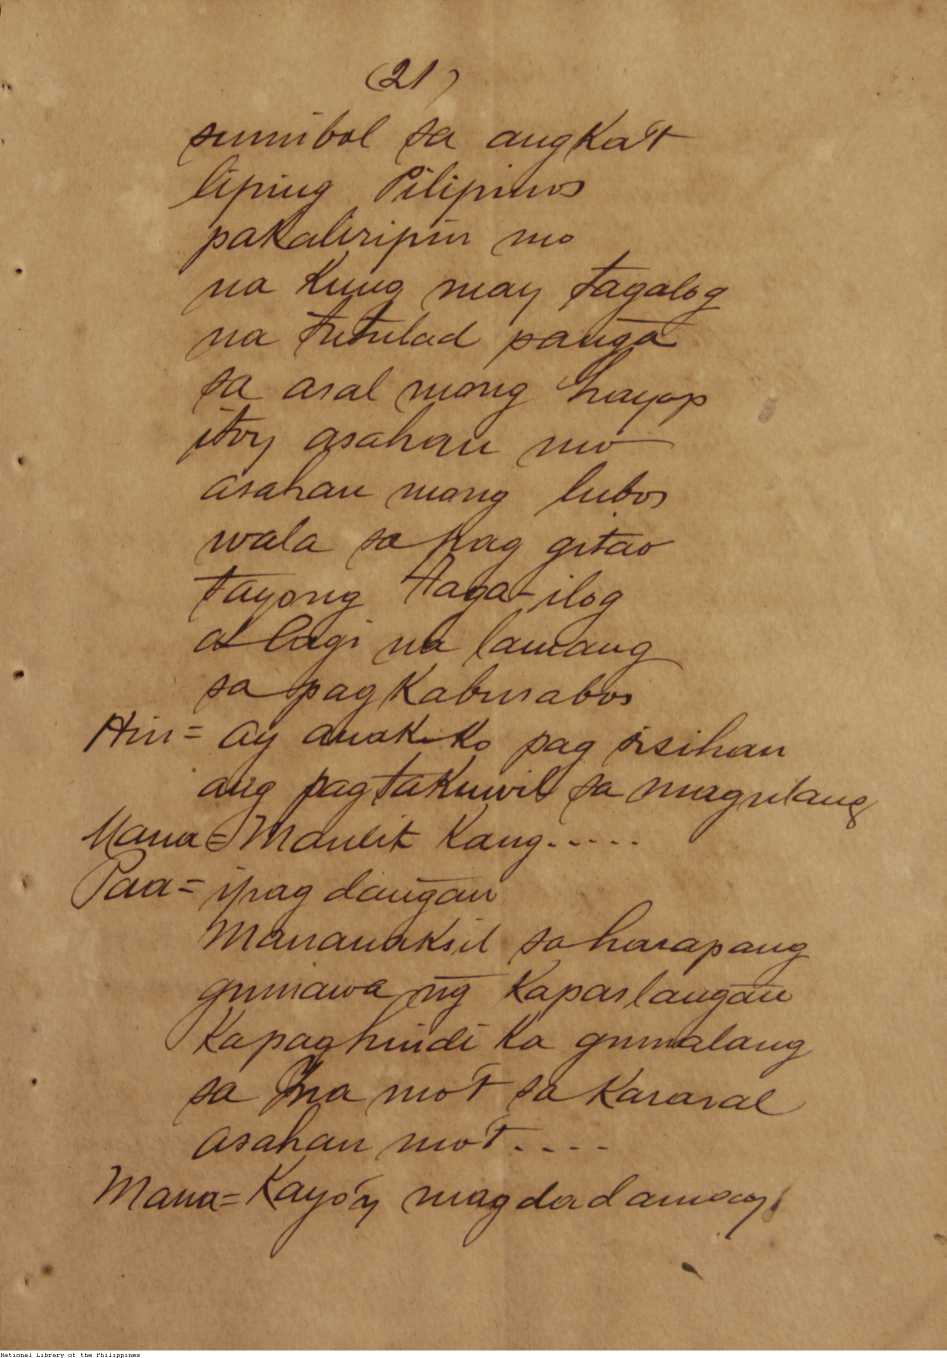 (21)
sumibol sa angkat
liping Pilipinos
pakaliripin mo
na kung may tagalog
na tutulad pañga
sa asal mong hayop
itoy asahan mo
asahan mong lubos
wala sa pag gitao
tayong Taga-ilog
at lagi na lamang
sa pagkabusabos
Hin= ay anak ko pag sisihan
ang pagtakuwil sa magulang
Mana= Maulit kang.....
Paa= ipag dañgan
Mananaksil sa harapang
gumawa ng̃ kapaslang̃an
kapaghindi ka gumalang
sa Ina mo't sa kararal
asahan mo't....
Mana= Kayo'y magdadamay!
National Library of the Philippines